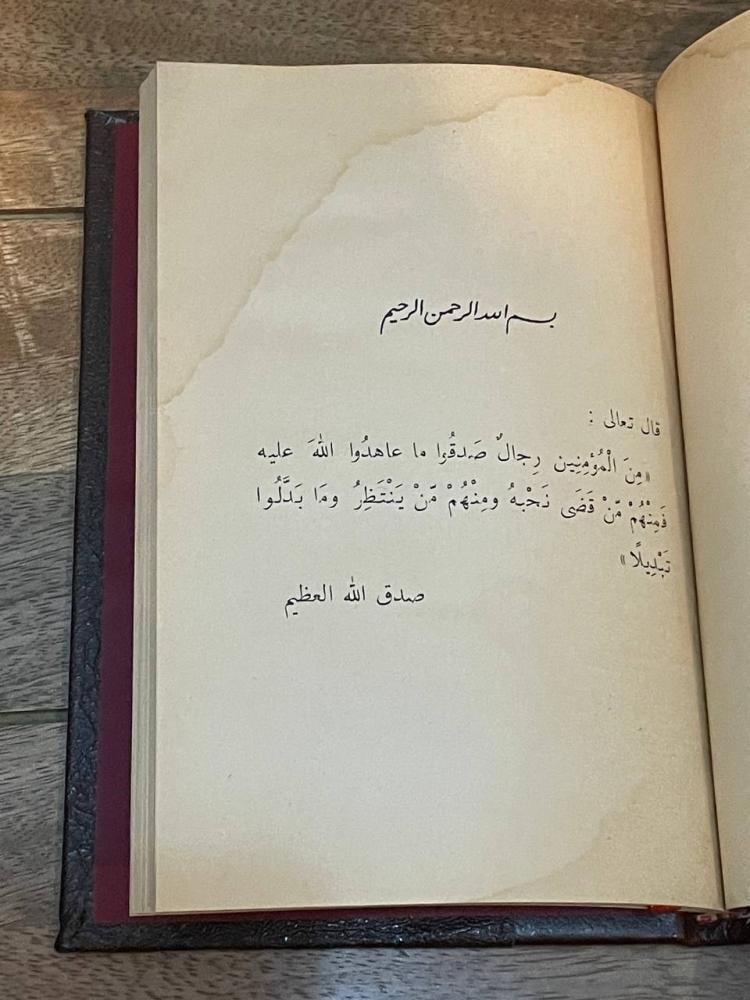 بسم الله الرحمن الرحيم
قال تعالى :
«مِنَ الْمُؤْمِنِين رِجالٌ صَدقُوا ما عاهدُوا اللهَ عليه
فَمِنْهُمْ مّنْ قَضَى نَحْبهُ ومِنْهُمْ مّنْ يَنْتَظِرُ ومَا بَدَّلُوا
تَبْدِيلًا»
صدق الله العظيم